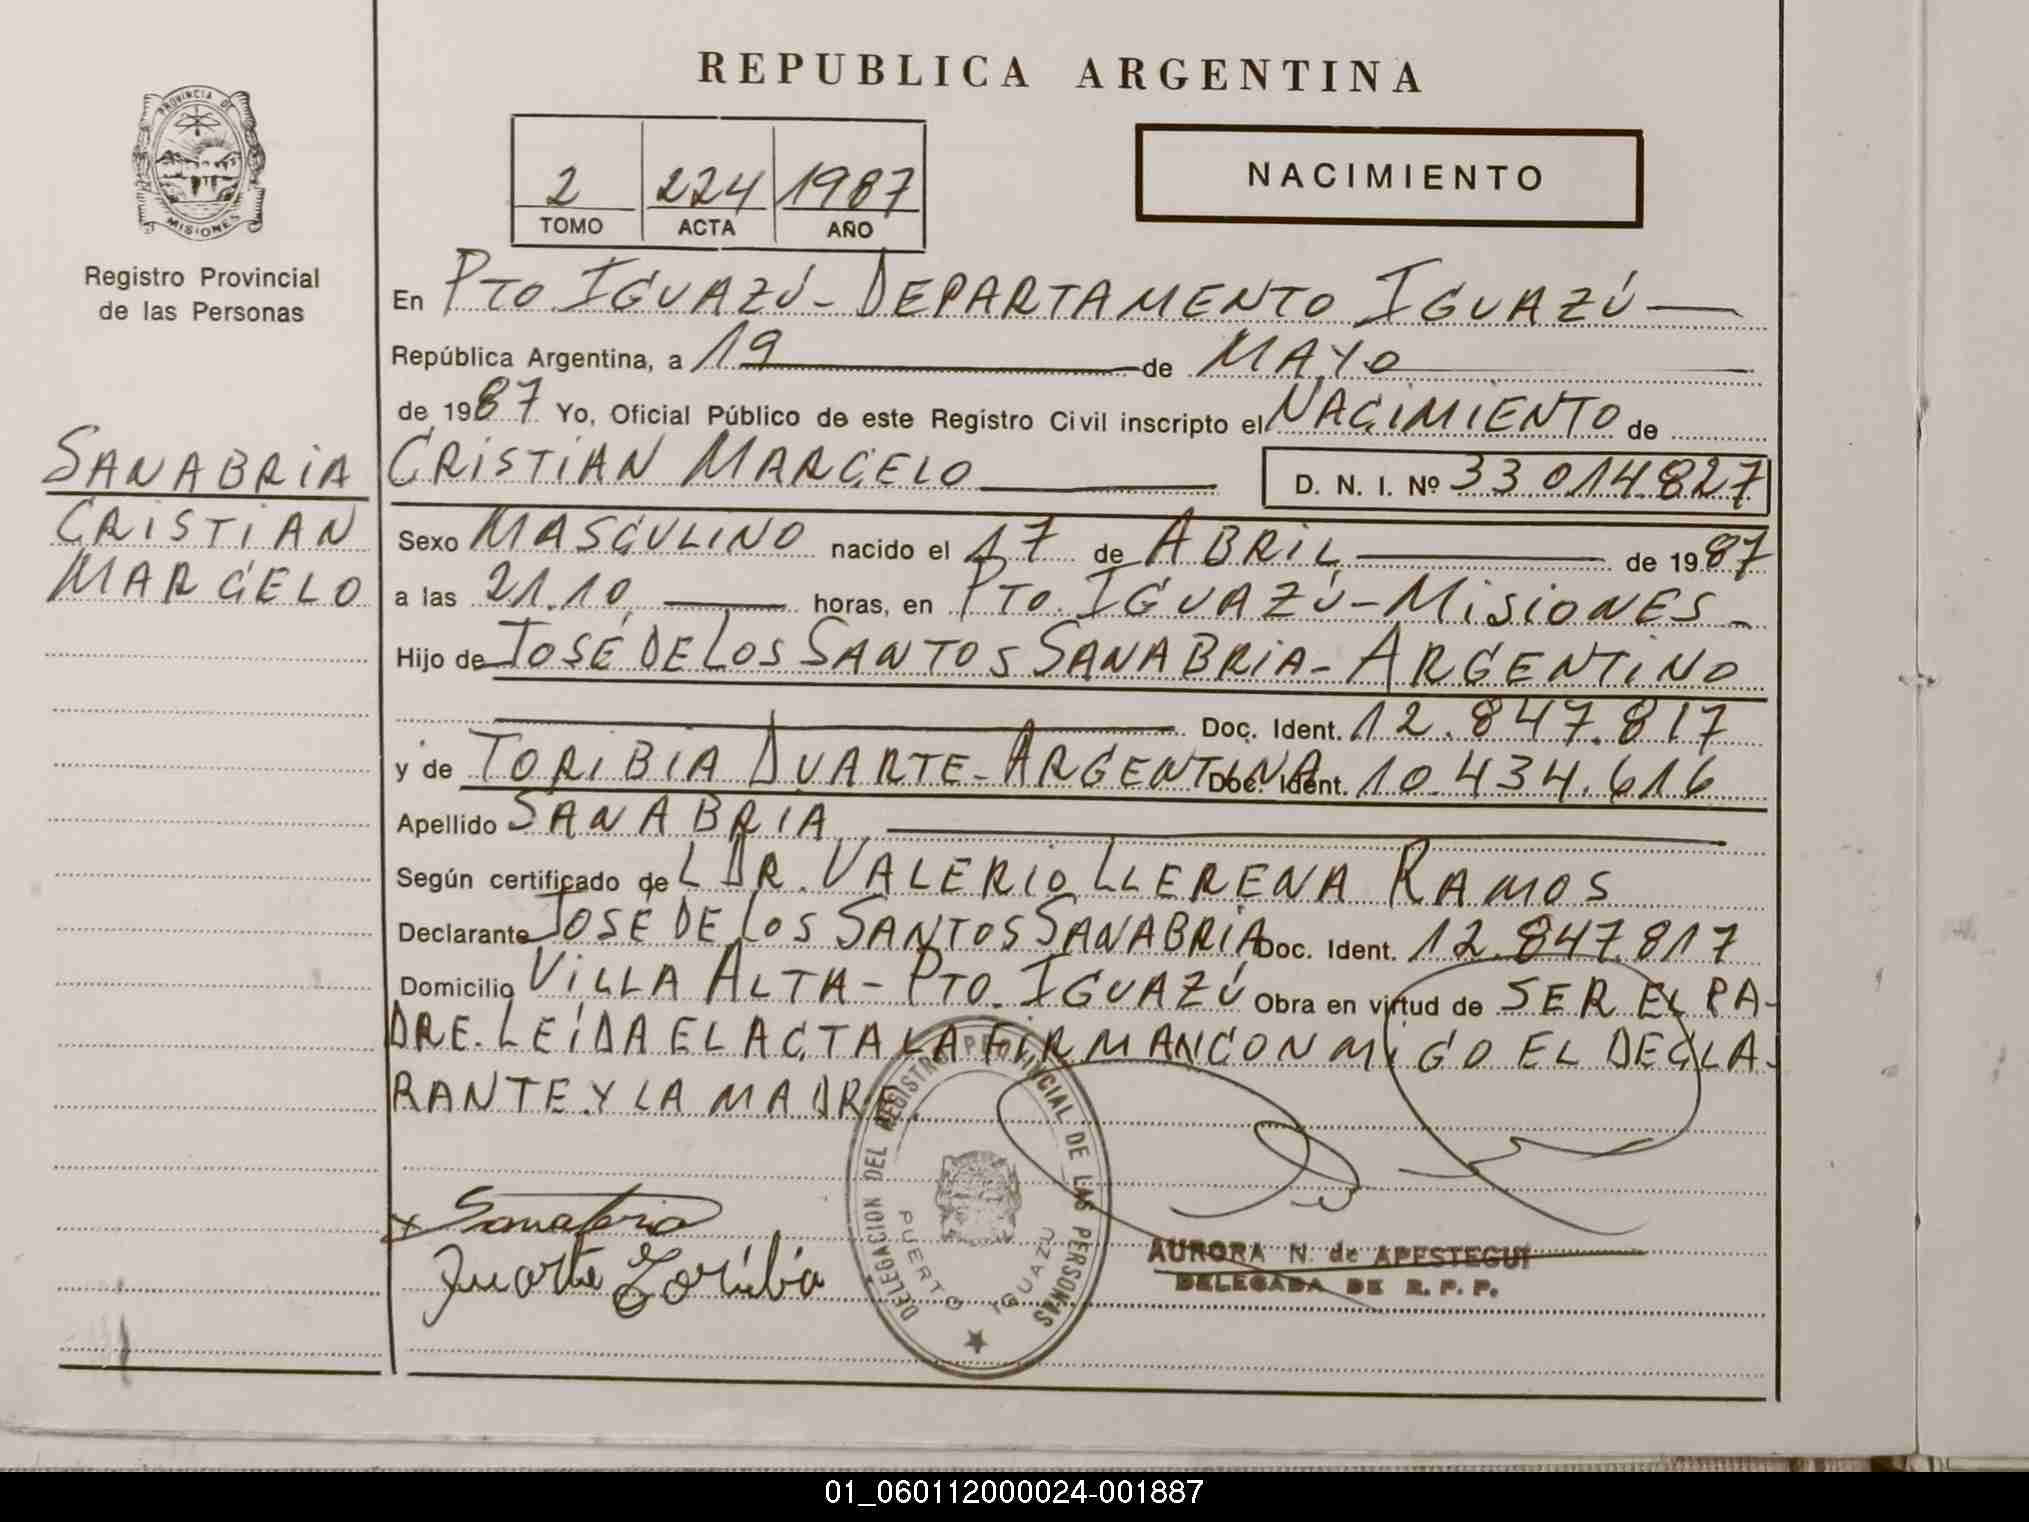 REPUBLICA ARGENTINA
PROVINCIA DE MISIONES
Registro Provincial
de las Personas
2 224 1987
TOMO ACTA AÑO
NACIMIENTO
En PTO IGUAZÚ - DEPARTAMENTO IGUAZÚ
República Argentina, a 19 de MAYO
de 1987 Yo, Oficial Público de este Registro Civil inscripto el NACIMIENTO de
SANABRIA
CRISTIAN
MARCELO
CRISTIAN MARCELO D. N. I. Nº 33 014.827
Sexo MASCULINO nacido el 17 de ABRIL de 1987
a las 21.10 horas, en PTO. IGUAZÚ - MISIONES -
Hijo de JOSÉ DE LOS SANTOS SANABRIA - ARGENTINO
Doc. Ident. 12.847.817
y de TORIBIA DUARTE - ARGENTINA Doc. Ident. 10.434.616
Apellido SANABRIA
Según certificado de L DR. VALERIO LLERENA RAMOS
Declarante JOSÉ DE LOS SANTOS SANABRIA Doc. Ident. 12.847.817
Domicilio VILLA ALTA - PTO. IGUAZÚ Obra en virtud de SER EL PA-
DRE. LEÍDA EL ACTA LA FIRMAN CONMIGO EL DECLA-
RANTE Y LA MADRE.
x Sanabria
Duarte Toribia
DELEGACION DEL REGISTRO PROVINCIAL DE LAS PERSONAS
PUERTO IGUAZU
AURORA N. de APESTEGUI
DELEGADA DE R. P. P.
01_060112000024-001887